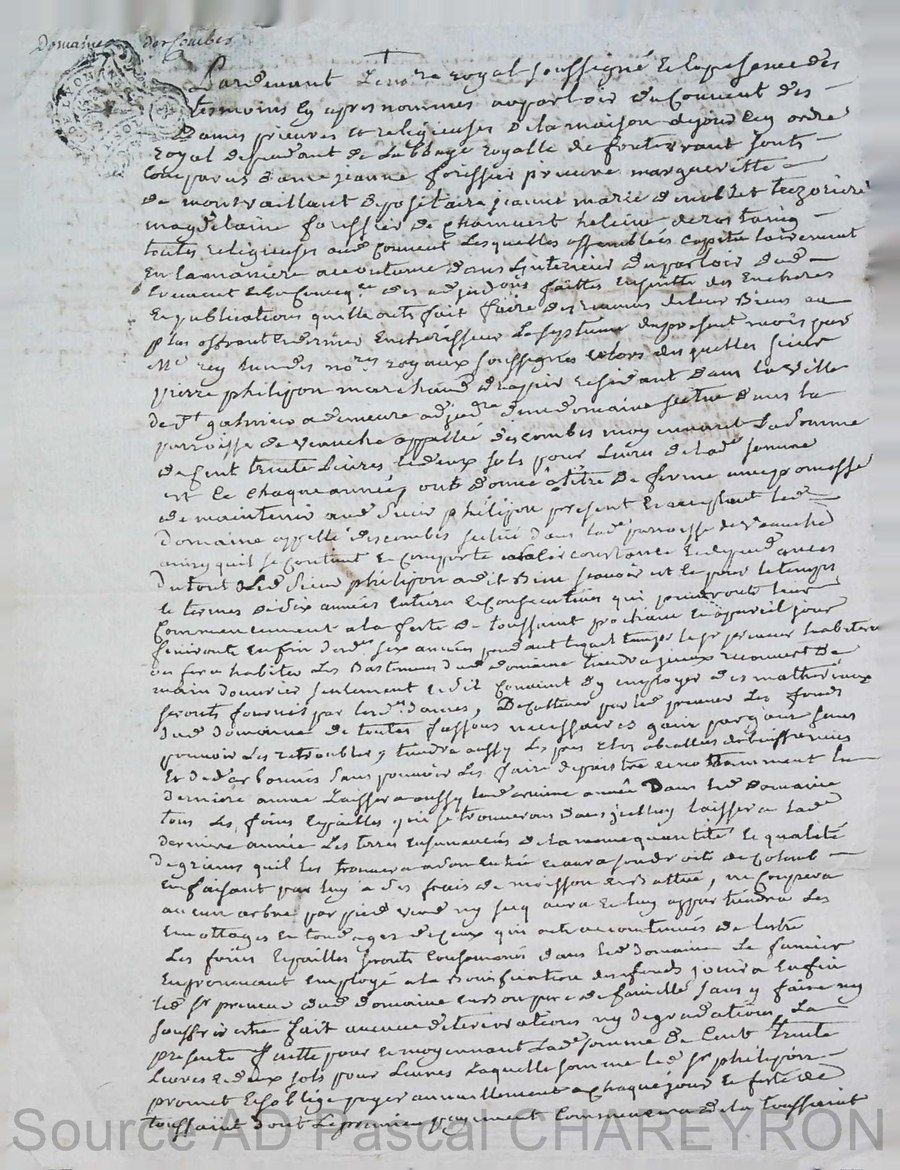 Domaine des Combes
Pardevant Le no.re royal soussigné Et En presence des
temoins Cy apres nommés au parloir du Couvent des
Dames prieures et religieuses de la maison de jourcey ordre
royal dependant de Labbaye royalle de fontevraut sont
Comparus dame jeanne forissier prieure margueritte
de montvaillant depositaire jeanne marie denoblet trezoriere
magdelaine forissier de chamvert heleine derostaing
toutes religieuses aud Couvent Lesquelles assemblées capitulairement
En la maniere accoutumé dans Linterieur du parloir dud
Couvent des adjud.ons faittes ensuitte des Encheres
Et publications quelle ont fait faire des revenus de leur Biens au
plus offrant et dernier Encherisseur Le septieme du present mois par
M.e rey no.res royaux soussignés lors des quelles sieur
pierre philipon marchand drapier residant dans la ville
de S.t galmier a demeuré adjud.re du domaine scitué dans la
parroisse de veauche appellé descombes moyennant La somme
de Cent trente Livres deux sols pour Livres de lad.e somme
et ce chaque années, ont donné a titre De ferme avec promesse
de maintenir aud Sieur philipon present Et acceptant Led
Domaine appellé descombes scitué dans lad.e parroisse de veauche
ainsy quil se Contient Et Comporte circonstances Et dependances
Du tout Led Sieur philipon a dit Bien scavoir et ce pour le temps
et termes de six années entieres et Consecutives qui prendront leur
Commencement a la feste de toussaint prochaine Et a pareil jour
finiront En fin desd.s six années pendant lequel temps le s.r preneur habitera
ou fera habiter Les Bastiments dud domaine tiendra iceux recouvert De
main douvrier seulement Et dit Convient dy employer des matheriaux
seront fournis par lesd.s dames, De cultiver par led preneur Les fonds
dud domaine de toutes fassons necessaires sans
pouvoir Les retroubler, tiendra aussy Les pres clos abealles debuissonnés
Et dedarbonnés sans pouvoir Les faire depaistre Et notamment la
derniere année Laissera aussy lad derniere année Dans led Domaine
tous Les foins Et pailles qui se trouveront dans jcelluy laissera lad
derniere année Les terres Ensemancées de la meme quantité Et qualité
de grains quil les trouvera a son Entrée et aura son droit de Colomb
En faisant par luy a ses frais de moisson Et Battue, ne Coupera
aucun arbre par pied verd ny secq aura Et luy appartiendra Les
Emottages Et tondages de ceux qui ont accoutumés de lestre
Les foins Et pailles seront Consommés dans led domaine Le fumier
En provenant Employé a la Bonification des fonds jouira Enfin
led s.r preneur dud domaine En bon pere de famille sans y faire ny
souffrir estre fait aucune deterioration ny degradations La
presente faitte pour Et moyennant Lad somme De Cent trente
Livres Et deux sols pour Livres Laquelle somme led S.r philipon
promet Et soblige payer annuellement a chaque jour Et feste de
toussaint dont Le premier payement Commencera de la toussaint
Source AD Pascal CHAREYRON